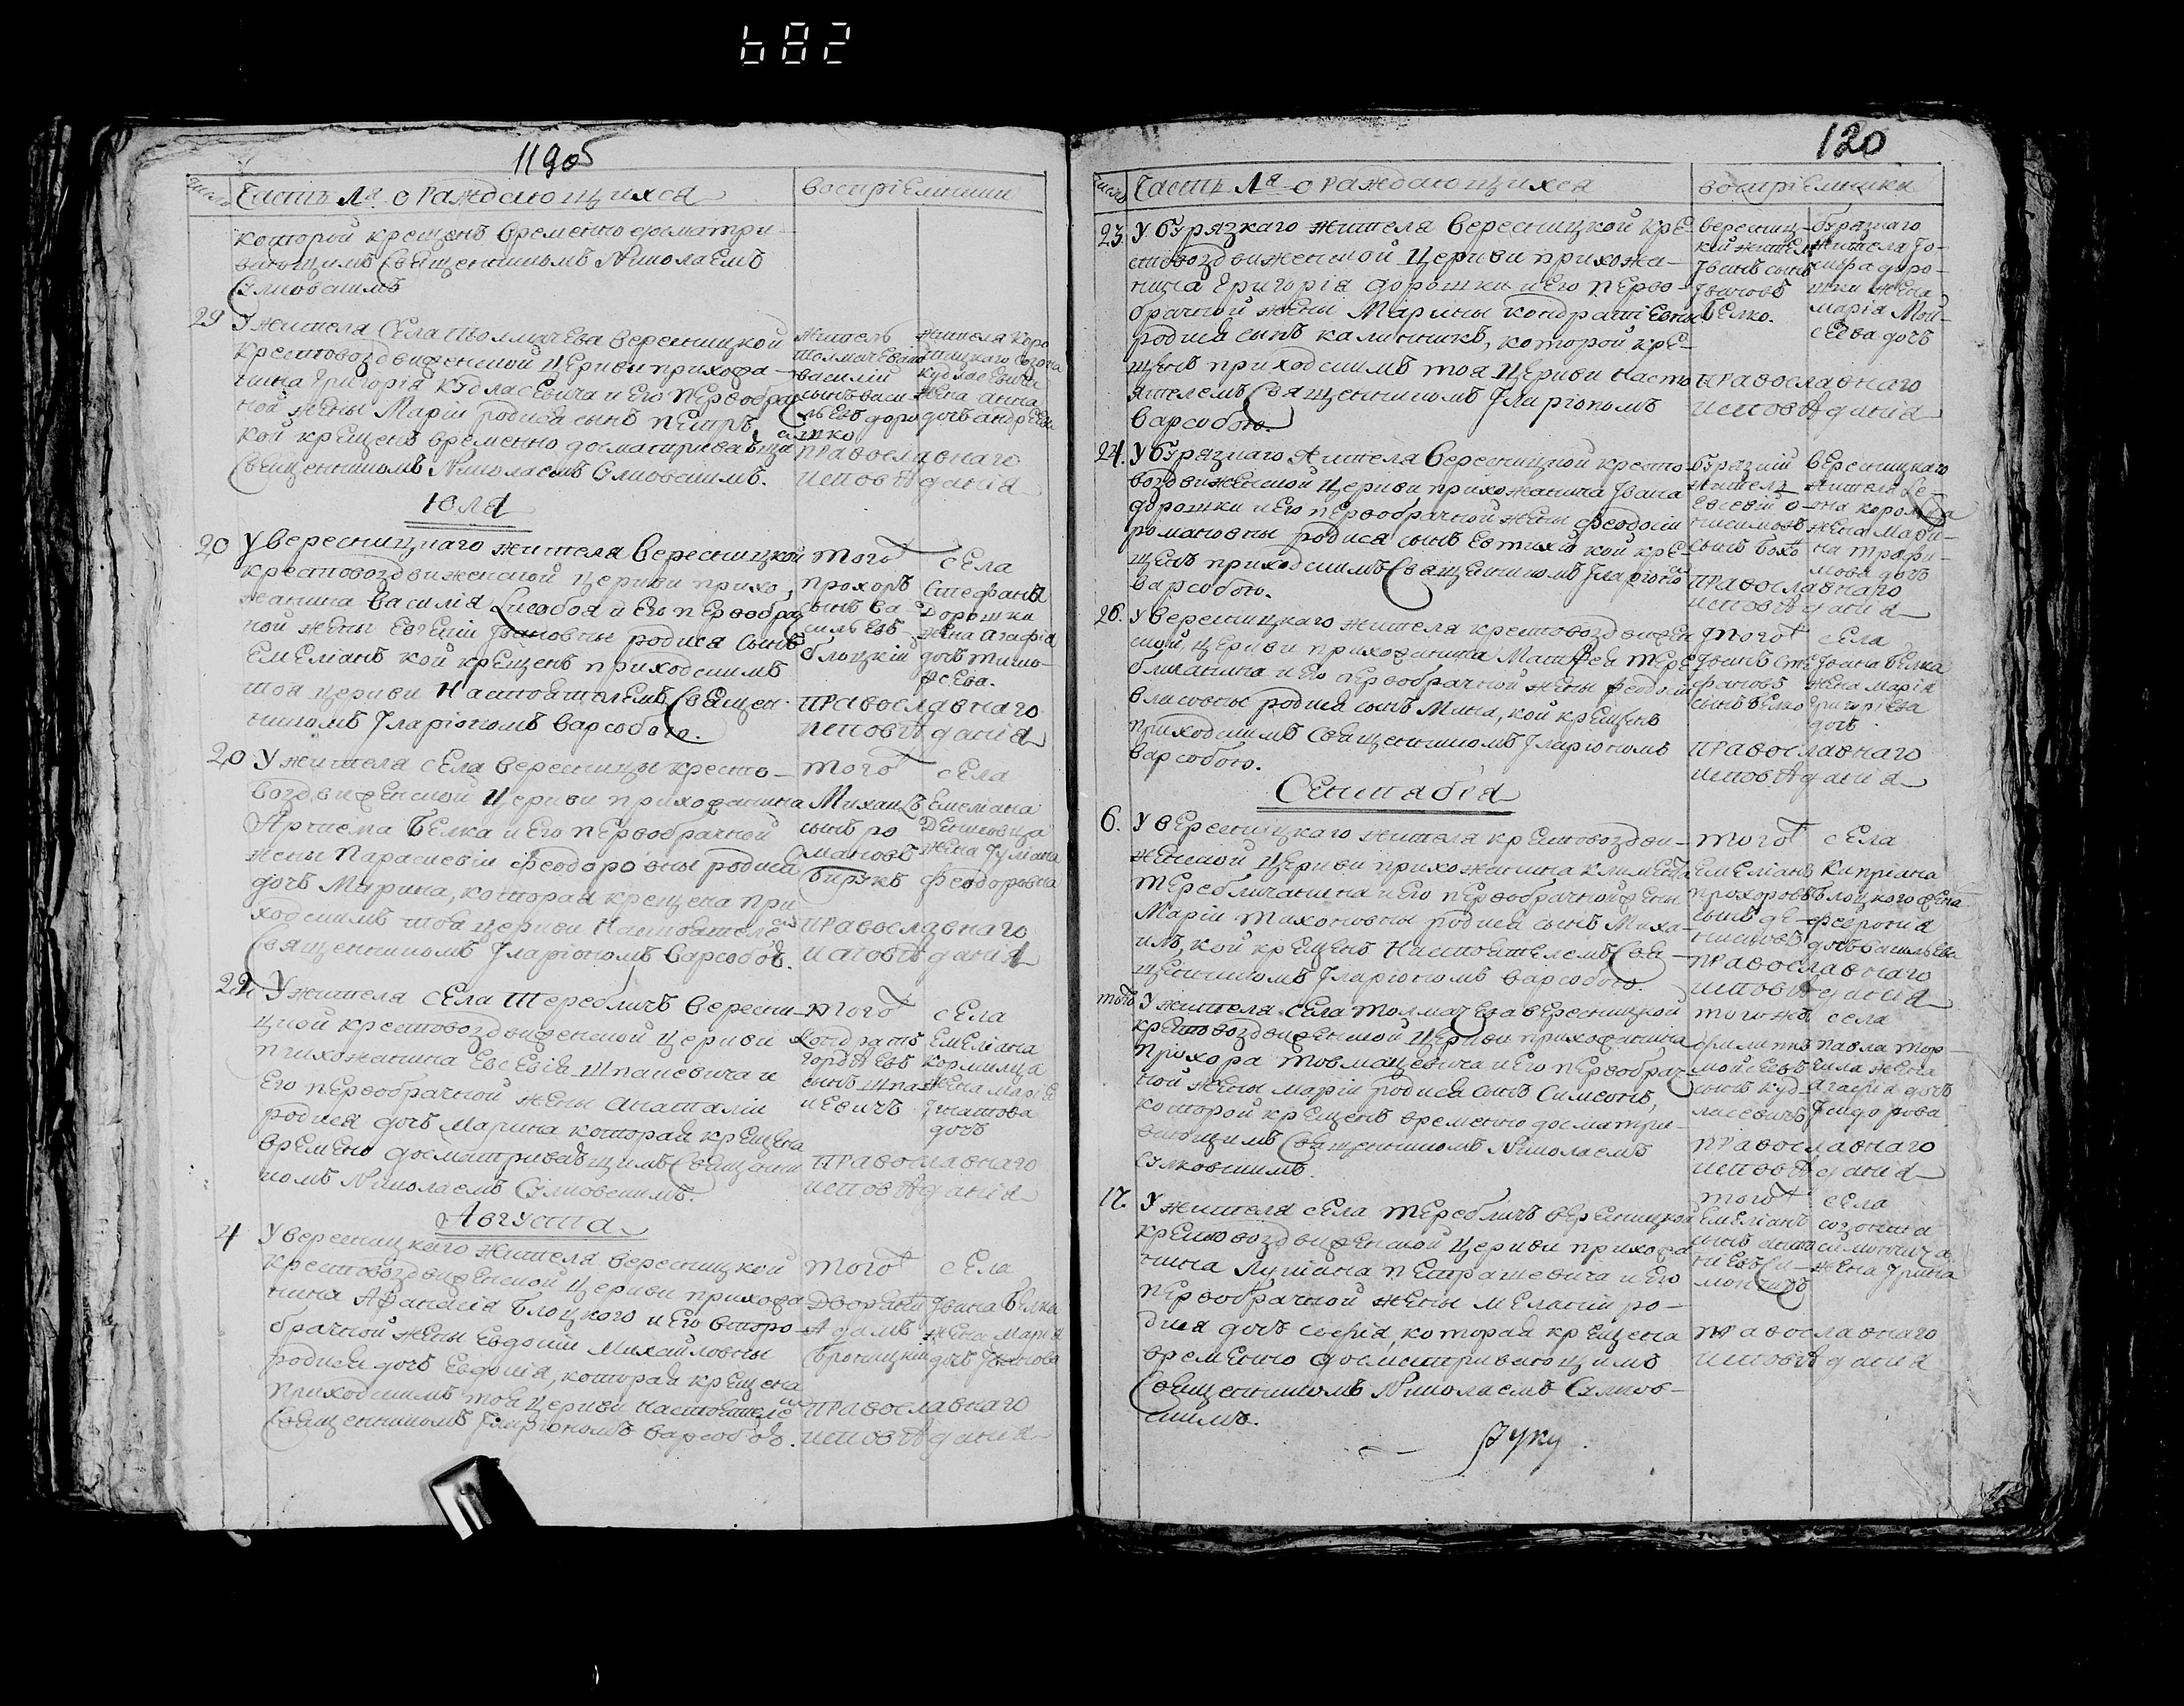 682
119об
число
Часть 1я о раждающихся
воспрiемники
которой крещенъ временно досматри-
вающимъ Священникомъ Николаемъ
29
У жителя Села Толмачева Вересницкой
крестовоздвиженской церкви прихожа-
нина Григорiя Кудласевича и Его первобрач
ной жены Марiи родися сынъ Петръ,
кой крещенъ временно досматривающи
Священникомъ Николаемъ
житель
толмачевскiй
василiй
сынъ васи
льевъ
жителя
жена анна
дочь андрѣе
православнаго
исповѣданiя
Юля
20
У Вересницкаго жителя Вересницкой
крестовоздвиженской церкви прихо-
жанина Василiя и Его первобрач
ной жены Евгенiи Ивановны родися сынъ
Емелiанъ кой крещенъ приходскимъ
тоя церкви Настоятелемъ Священ-
никомъ Iларiономъ Варсобою.
того
прохоръ
сынъ ва
сильевъ
блоцкiй
села
Стефана
Дорошки
жена агафiя
дочь тимо-
феева.
православнаго
исповѣданiя
20
У жителя села Вересницы кресто-
воздвиженской церкви прихожанина
Артиема Белка и Его первобрачной
жены Параскевiи Феодоровны родися
дочь Марина, которая крещена при
ходскимъ тоя церкви Настоятеле
Священникомъ Iларiономъ Варсобою.
того
Михаилъ
сынъ ро
мановъ
бирукъ
села
Емелiана
Денисовца
жена Iулiана
Феодоровна
православнаго
исповѣданiя
22
У жителя села Тереблičъ Вересни-
цкой крестовоздвиженской церкви
прихожанина Евсевiя Шпаковича и
Его первобрачной жены Анаталiи
родися дочь Марина которая крещена
временно досматривающимъ Священни
комъ Николаемъ
того
Кондратъ
гордѣевъ
сынъ
села
Емелiана
Кормилца
жена марiя
Игнатова
дочь
православнаго
исповѣданiя
Августа
4
У Вересницкаго жителя Вересницкой
крестовоздвиженской церкви прихожа
нина Афанасiя Блоцкого и Его второ-
брачной жены Евдокiи Михайловны
родися дочь Евдокiя, которая крещена
приходскимъ тоя церкви Настоятеле
Священникомъ Iларiономъ Варсобою.
того
Дворянин
Адамъ
броницкiй
села
Ивана белка
жена Марiя
дочь Иванова
православнаго
исповѣданiя
120
число
Часть 1я о раждающихся
воспрiемники
23.
У Бурязкаго жителя Вересницкой кре-
стовоздвиженской церкви прихожа-
нина Григорiя Дорошки и Его перво-
брачной жены Марины Кондратiевны
родися сынъ Калинникъ, которой кре-
щенъ приходскимъ тоя церкви насто
ятелемъ Священникомъ Iларiономъ
Варсобою.
вересниц-
кой житель
Iванъ сынъ
Iвановъ
белко.
бурязкаго
жителя Iо-
сифа доро-
шки жена
марiя Мои-
сеева дочь
православнаго
исповѣданiя
24.
У Бурязкаго жителя Вересницкой кресто-
воздвиженской церкви прихожанина Iвана
дорошки и Его первобрачной жены Феодосiи
романовны родися сынъ Евтихiй кой кре-
щенъ приходскимъ Священникомъ Iларiоном
Варсобою.
бурязкiй
житель
Евсевiй о-
нисимовъ
сынъ
вересницкаго
жителя
жена Мари-
на трофи-
мова дочь
православнаго
исповѣданiя
26.
У вересницкаго жителя крестовоздвижен
ской, церкви прихожанина Матфея Тере
бличанина и Его первобрачной жены феодосiи
власовны родися сынъ Мина, кой крещенъ
приходскимъ Священникомъ Iларiономъ
Варсобою.
того
Iванъ Сте
фановъ
сынъ белко
села
Iвана белка
жена марiя
григорiева
дочь
православнаго
исповѣданiя
Сентября
6.
У Вересницкаго жителя крестовоздви-
женской церкви прихожанина Климента
Теребличанина и Его первобрачной жены
Марiи Тихоновны родися сынъ Миха-
илъ, кой крещенъ Настоятелемъ Свя-
щенникомъ Iларiономъ Варсобою.
того
Емелiанъ
прохоровъ
сынъ де-
нисовъ
села
Кипрiана
блоцкого жена
феврония
дочь васильева
православнаго
исповѣданiя
того
У жителя села Толмачева вересницкой
крестовоздвиженской церкви прихожанина
Прохора Товмацевича и Его первобрач-
ной жены марiи родися сынъ Симеонъ,
которой крещенъ временно досматри-
вающимъ Священникомъ Николаемъ
того же
филиппъ
моисеевъ
сынъ куд-
ласевичъ
села
павла
жена
агафiя дочь
Iсидорова
православнаго
исповѣданiя
17.
У жителя села Теребличъ вересницкой
крестовоздвиженской церкви прихожа
нина Лукiана Петрашевича и Его
первобрачной жены меланiи ро-
дися дочь Софiя, которая крещена
временно досматривающимъ
Священникомъ Николаемъ
того
Емелiанъ
сынъ
села
созонна
симонича
жена Ирина
православнаго
исповѣданiя